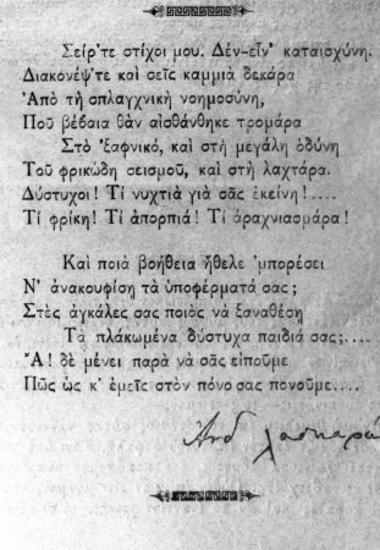 Σεῖρ'τε στίχοι μου. Δέν-εἶν' καταισχύνη.
Διακονέψ'τε καὶ σεῖς καμμιὰ δεκάρα
Ἀπὸ τὴ σπλαγχνικὴ νοημοσύνη,
Ποῦ βέβαια θἂν αἰσθάνθηκε τρομάρα
Στὸ 'ξαφνικό, καὶ στὴ μεγάλη ὀδύνη
Τοῦ φρικώδη σεισμοῦ, καὶ στὴ λαχτάρα.
Δύστυχοι! Τί νυχτιὰ γιὰ σᾶς ἐκείνη!....
Τί φρίκη! Τί ἀπορπιά! Τί ἀραχνιασμάρα!
Καὶ ποιὰ βοήθεια ἤθελε 'μπορέσει
Ν' ἀνακουφίσῃ τὰ ὑποφέρματά σας;
Στὲς ἀγκάλες σας ποιὸς νὰ ξαναθέσῃ
Τὰ πλάκωμένα δύστυχα παιδιά σας;....
Ἄ! δὲ μένει παρὰ νὰ σᾶς εἰποῦμε
Πῶς ὡς κ' ἐμεῖς στὸν πόνο σας πονοῦμε....
Ανδ λασκαρά